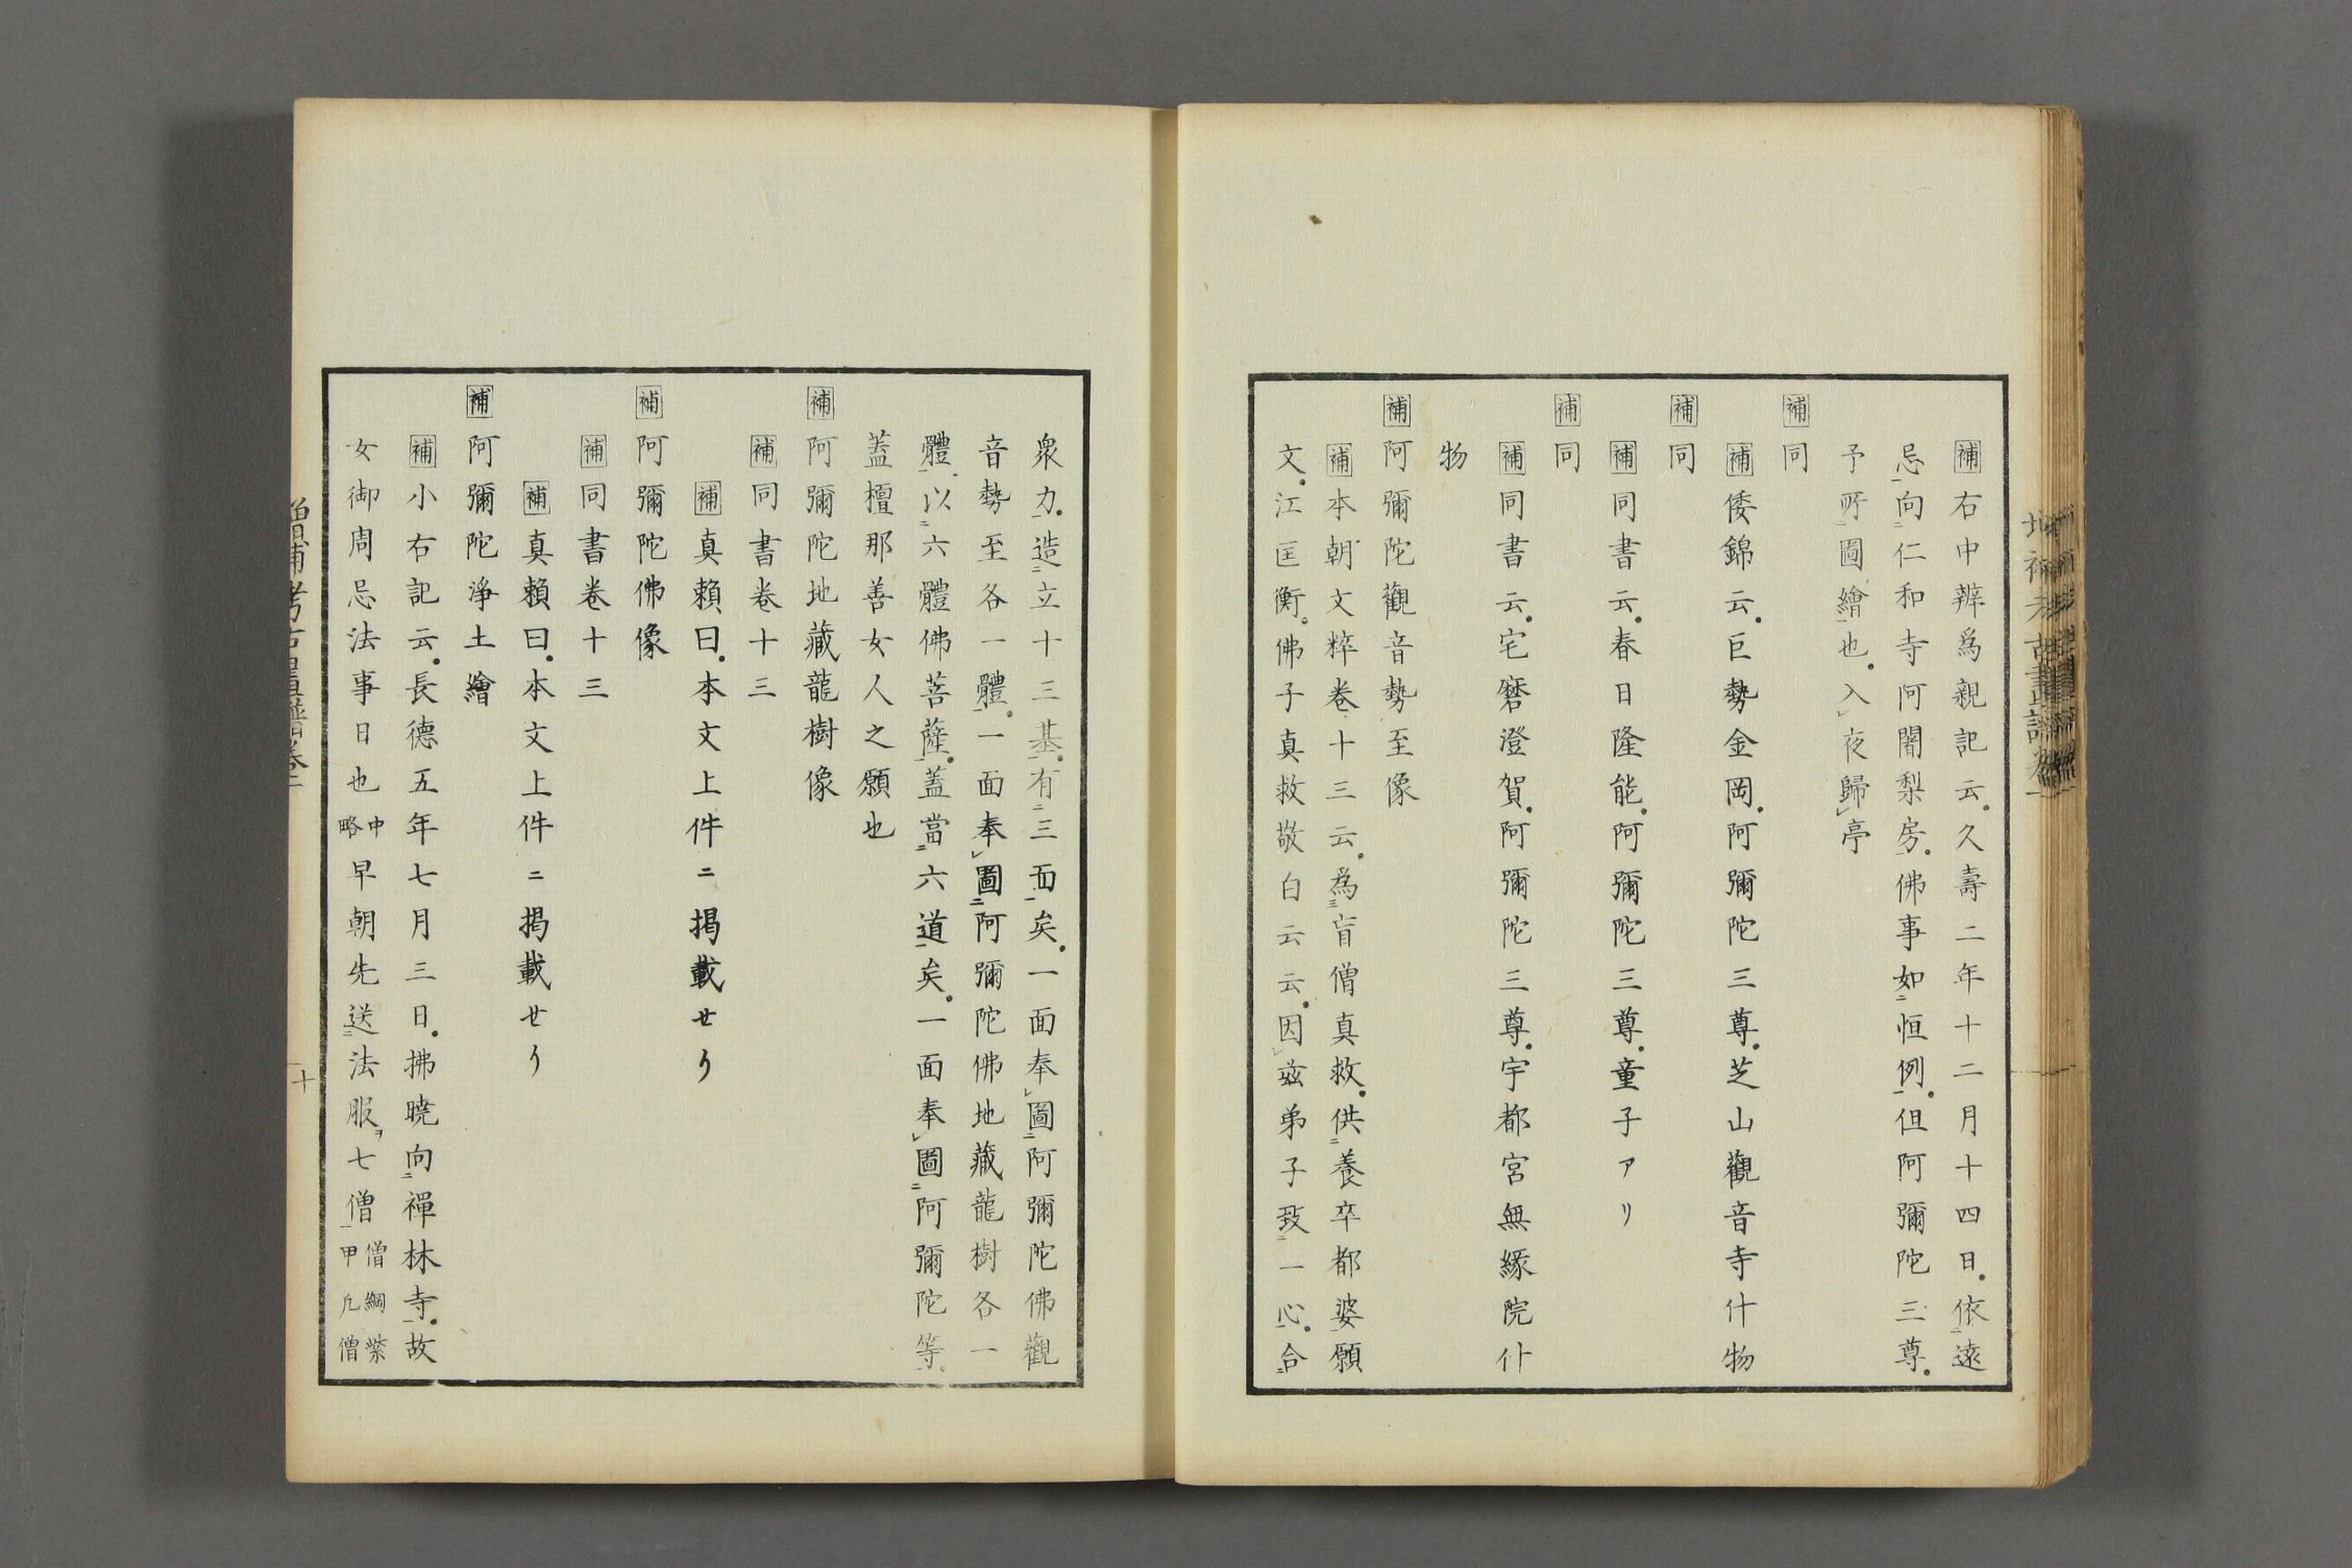 補右中辨爲親記云久壽二年十二月十四日依遠
忌向仁和寺阿闍梨房佛事如恒例但阿彌陀三尊
予所圖繪也入夜歸亭
補同
補倭錦云巨勢金岡阿彌陀三尊芝山觀音寺什物
補同
補同書云春日隆能阿彌陀三尊童子アリ
補同
補同書云宅磨澄賀阿彌陀三尊宇都宮無緣院什
物
補阿彌陀觀音勢至像
補本朝文粹卷十三云爲盲僧真救供養卒都婆願
文江匡衡佛子真救敬白云云因玆弟子致一心合
衆力造立十三基有三面矣一面奉圖阿彌陀佛觀
音勢至各一體一面奉圖阿彌陀佛地藏龍樹各一
體以六體佛菩薩蓋當六道矣一面奉圖阿彌陀等
蓋檀那善女人之願也
補阿彌陀地藏龍樹像
補同書卷十三
補真賴曰本文上件ニ揭載セリ
補阿彌陀佛像
補同書卷十三
補真賴曰本文上件ニ揭載セリ
補阿彌陀淨土繪
補小右記云長德五年七月三日拂曉向禪林寺故
女御周忌法事日也中略早朝先送法服ヲ七僧僧綱紫甲凡僧
增補考古畫譜卷二
十